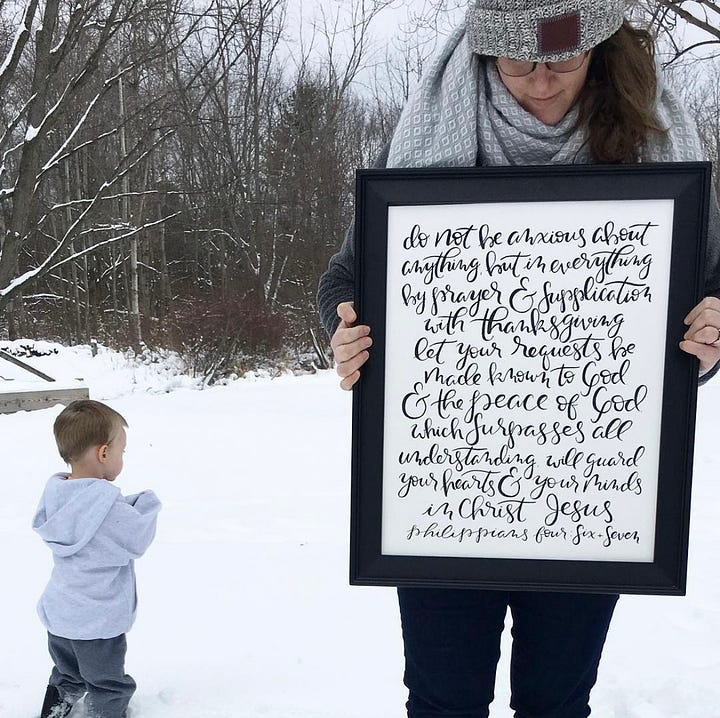 do not be anxious about
anything, but in everything
by prayer & supplication
with thanksgiving
let your requests be
made known to God
& the peace of God
which surpasses all
understanding, will guard
your hearts & your minds
in Christ Jesus
philippians four: six + seven